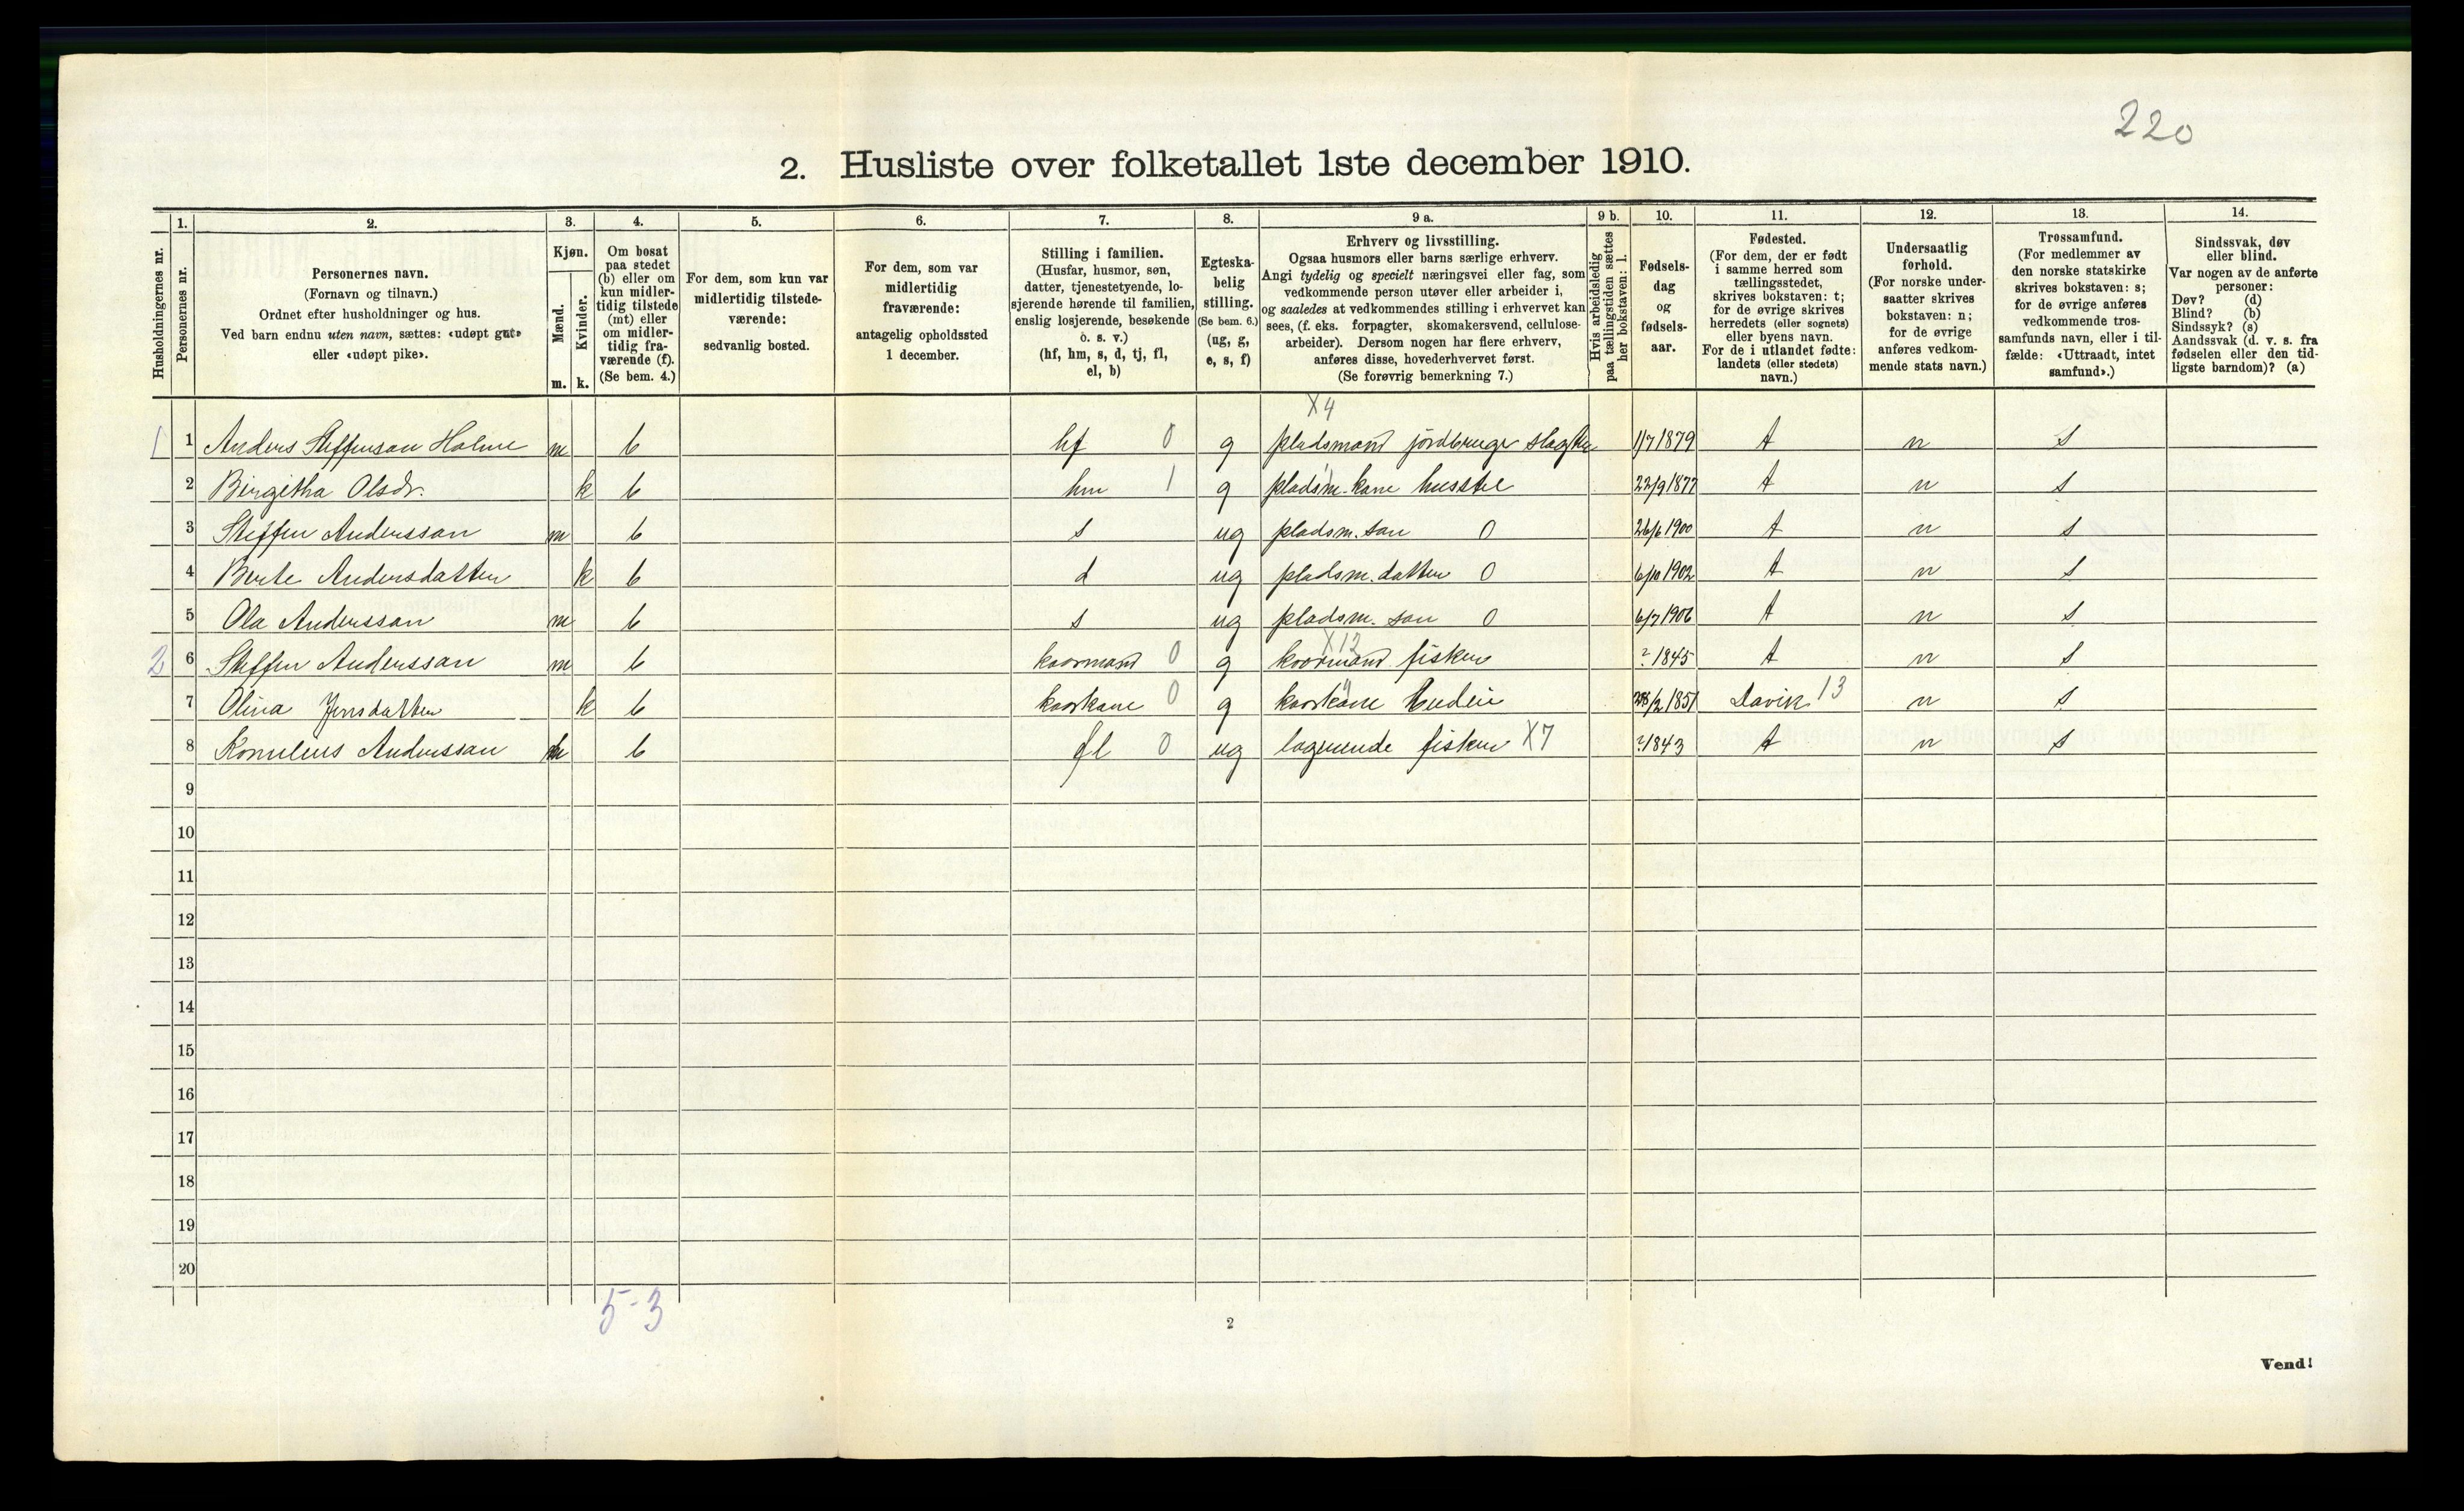 220
2. Husliste over folketallet 1ste december 1910.
Husholdningernes nr.
1. Personernes nr.
2. Personernes navn.
(Fornavn og tilnavn.)
Ordnet efter husholdninger og hus.
Ved barn endnu uten navn, sættes: «udøpt gut»
eller «udøpt pike».
3. Kjøn.
Mænd. m.
Kvinder. k.
4. Om bosat
paa stedet
(b) eller om
kun midler-
tidig tilstede
(mt) eller
om midler-
tidig fra-
værende (f).
(Se bem. 4.)
5. For dem, som kun var
midlertidig tilstede-
værende:
sedvanlig bosted.
6. For dem, som var
midlertidig
fraværende:
antagelig opholdssted
1 december.
7. Stilling i familien.
(Husfar, husmor, søn,
datter, tjenestetyende, lo-
sjerende hørende til familien,
enslig losjerende, besøkende
o. s. v.)
(hf, hm, s, d, tj, fl,
el, b)
8. Egteska-
belig
stilling.
(Se bem. 6.)
(ug, g,
e, s, f)
9 a. Erhverv og livsstilling.
Ogsaa husmors eller barns særlige erhverv.
Angi tydelig og specielt næringsvei eller fag, som
vedkommende person utøver eller arbeider i,
og saaledes at vedkommendes stilling i erhvervet kan
sees, (f. eks. forpagter, skomakersvend, cellulose-
arbeider). Dersom nogen har flere erhverv,
anføres disse, hovederhvervet først.
(Se forøvrig bemerkning 7.)
9 b. Hvis arbeidsledig
paa tællingstiden sættes
her bokstaven: l.
10. Fødsels-
dag
og
fødsels-
aar.
11. Fødested.
(For dem, der er født
i samme herred som
tællingsstedet,
skrives bokstaven: t;
for de øvrige skrives
herredets (eller sognets)
eller byens navn.
For de i utlandet fødte:
landets (eller stedets)
navn.)
12. Undersaatlig
forhold.
(For norske under-
saatter skrives
bokstaven: n;
for de øvrige
anføres vedkom-
mende stats navn.)
13. Trossamfund.
(For medlemmer av
den norske statskirke
skrives bokstaven: s;
for de øvrige anføres
vedkommende tros-
samfunds navn, eller i til-
fælde: «Uttraadt, intet
samfund».)
14. Sindssvak, døv
eller blind.
Var nogen av de anførte
personer:
Døv? (d)
Blind? (b)
Sindssyk? (s)
Aandssvak (d. v. s. fra
fødselen eller den tid-
ligste barndom)? (a)
X4
1 1 Anders Steffensan Holme m b hf 0 g pladsmand jordbruger slagter 1/7 1879 t n s
2 Birgitha Olsdr. k b hm 1 g pladsm. kone husstel 22/9 1877 t n s
3 Steffen Anderssan m b s ug pladsm. san 0 26/6 1900 t n s
4 Berte Andersdatter k b d ug pladsm. datter 0 6/10 1902 t n s
5 Ola Anderssan m b s ug pladsm. san 0 6/7 1906 t n s
X12
2 6 Steffen Anderssan m b kaarmand 0 g kaarmand fisker ? 1845 t n s
7 Olina Jensdatter k b kaarkane 0 g kaarkane 28/2 1851 Davik 13 n s
8 Kornelius Anderssan m b fl 0 ug logerende fisker X7 ? 1843 t n s
9
10
11
12
13
14
15
16
17
18
19
20
5-3
2
Vend!